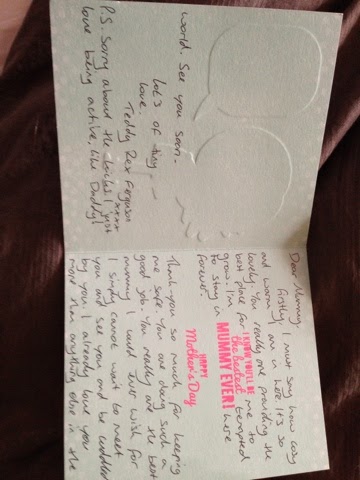 Dear Mummy,
Firstly, I must say how cosy
and warm I am in here. It's so
lovely. You really are providing the
best place for me to
grow. I'm tempted
to stay in here
forever!
I KNOW YOU'LL BE
the bestest
MUMMY EVER!
HAPPY
Mother's Day
Thank-you so much for keeping
me safe. You are doing such a
good job. You really are the best
mummy I could ever wish for.
I simply cannot wait to meet
you and see you and be cuddled
by you. I already love you
more than anything else in the
world. See you soon -
lots of tiny
love,
Teddy Rex Ferguson
xxxx
P.S. Sorry about the kicks! I just
love being active, like Daddy!